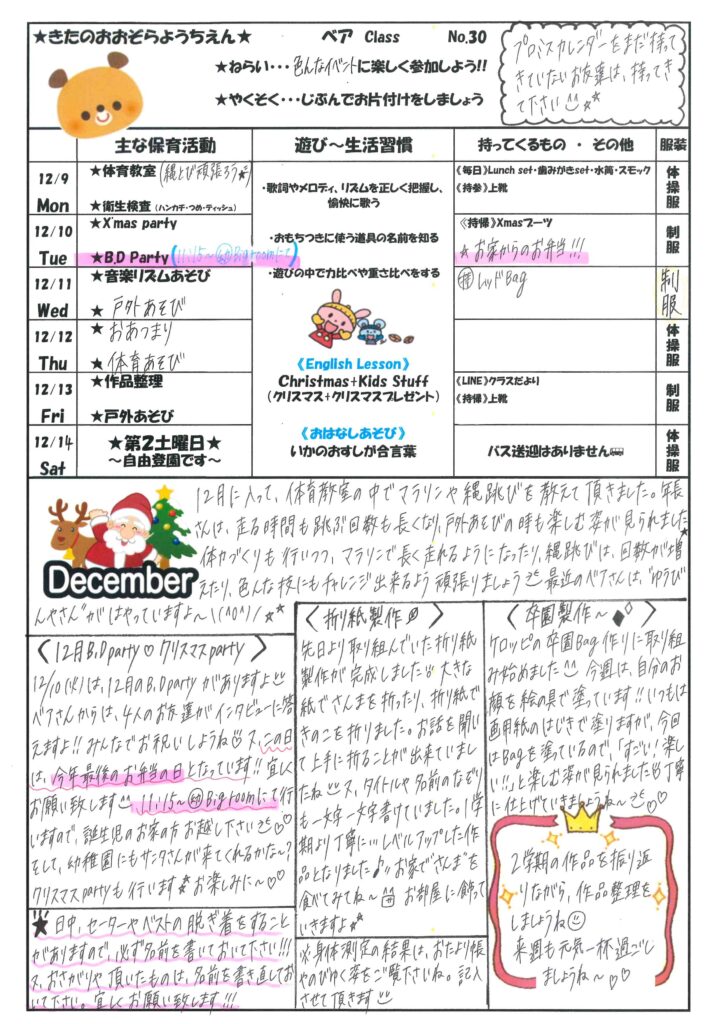 ★きたのおおぞらようちえん★ ベア Class No.30
★ねらい・・・色んなイベントに楽しく参加しよう!!
★やくそく・・・じぶんでお片付けをしましょう
プロミスカレンダーをまだ持って
きていないお友達は、持ってき
て下さい
主な保育活動 遊び～生活習慣 持ってくるもの ・ その他 服装
12/9 Mon
★体育教室(縄とび頑張ろう★)
★衛生検査(ハンカチ・つめ・ティッシュ)
《毎日》Lunch set・歯みがきset・水筒・スモック
《持参》上靴
体操服
12/10 Tue
★X'mas party
★B.D Party(11:15～Big roomにて)
《持帰》Xmasブーツ
★お家からのお弁当!!!
制服
12/11 Wed
★音楽リズムあそび
★戸外あそび
持 レッドBag
制服
12/12 Thu
★おあつまり
★体育あそび
体操服
12/13 Fri
★作品整理
★戸外あそび
《LINE》クラスだより
《持帰》上靴
制服
12/14 Sat
★第2土曜日★
～自由登園です～
バス送迎はありません
体操服
・歌詞やメロディ、リズムを正しく把握し、
愉快に歌う
・おもちつきに使う道具の名前を知る
・遊びの中で力比べや重さ比べをする
《English Lesson》
Christmas+Kids Stuff
(クリスマス+クリスマスプレゼント)
《おはなしあそび》
いかのおすしが合言葉
December
12月に入って、体育教室の中でマラソンや縄跳びを教えて頂きました。年長
さんは、走る時間も跳ぶ回数も長くなり、戸外あそびの時も楽しむ姿が見られました★
体力づくりも行いつつ、マラソンで長く走れるようになったり、縄跳びは、回数が増
えたり、色んな技にもチャレンジ出来るよう頑張りましょう 最近のベアさんは、"ゆうび
んやさん"がはやっていますよ～\(^o^)/★★
〈12月B.D party♡クリスマスparty〉
12/10(火)は、12月のB.D partyがありますよ
ベアさんからは、4人のお友達がインタビューに答
えますよ!!みんなでお祝いしようね♡又、この日
は、今年最後のお弁当の日となっています!!宜しく
お願い致します 11:15～Big roomにて行
いますので、誕生児のお家の方お越し下さい♡♡
そして、幼稚園にもサンタさんが来てくれるかな～?
クリスマスpartyも行います★お楽しみに～♡♡
★日中、セーターやベストの脱ぎ着をすること
がありますので、必ず名前を書いておいて下さい!!!
又、おさがりや頂いたものは、名前を書き直してお
いて下さい。宜しくお願い致します!!!
〈折り紙製作〉
先日より取り組んでいた折り紙
製作が完成しました!! 大きな
紙でさんまを折ったり、折り紙で
きのこを折りました。お話を聞い
て上手に折ることが出来ていまし
たね 又、タイトルや名前のなぞり
も一文字一文字書けていました。1学
期より丁寧に…レベルアップした作
品となりました♪"お家でさんま"を
食べてみてね～ お部屋に飾って
いきますよ★
※身体測定の結果は、おたより帳
やのびゆく姿をご覧下さいね。記入
させて頂きます
〈卒園製作～◆◇〉
ケロッピの卒園Bag作りに取り組
み始めました 今週は、自分のお
顔を絵の具で塗っています!!いつもは
画用紙のはじきで塗りますが、今回
はBagを塗っているので、「すごい!楽し
い!!」と楽しむ姿が見られました!!丁寧
に仕上げていきましょうね～♡♡
2学期の作品を振り返
りながら、作品整理を
しましょうね
来週も元気一杯過ごし
ましょうね～♡♡